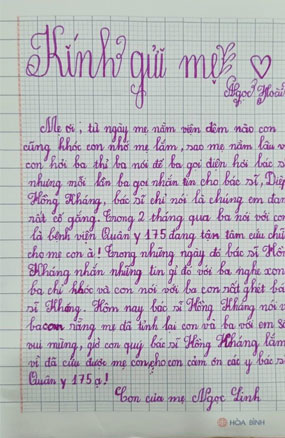 Kính gửi mẹ
Ngọc Hoài
Mẹ ơi, từ ngày mẹ nằm viện đêm nào con
cũng khóc con nhớ mẹ lắm, sao mẹ nằm lâu v
con hỏi ba thì ba nói để ba gọi điện hỏi bác s
nhưng mỗi lần ba gọi nhắn tin cho bác sĩ, Diệp
Hồng Kháng, bác sĩ chỉ nói là chúng em đan
rất cố gắng. Trong 2 tháng qua ba nói với con
là bệnh viện Quân y 175 đang tận tâm cứu chữ
cho mẹ con ạ! Trong những ngày đó bác sĩ Hồn
Kháng nhắn những tin gì đó với ba nghe xong
ba chỉ khóc và con nói với ba con rất ghét bá
sĩ Kháng. Hôm nay bác sĩ Hồng Kháng nói v
ba con rằng mẹ đã tỉnh lại con và ba với em Sa
vui mừng, giờ con quý bác sĩ Hồng Kháng lắm
vì đã cứu được mẹ con, cho con cảm ơn các y bác s
Quân y 175 ạ!
Con của mẹ Ngọc Linh
HÒA BÌNH